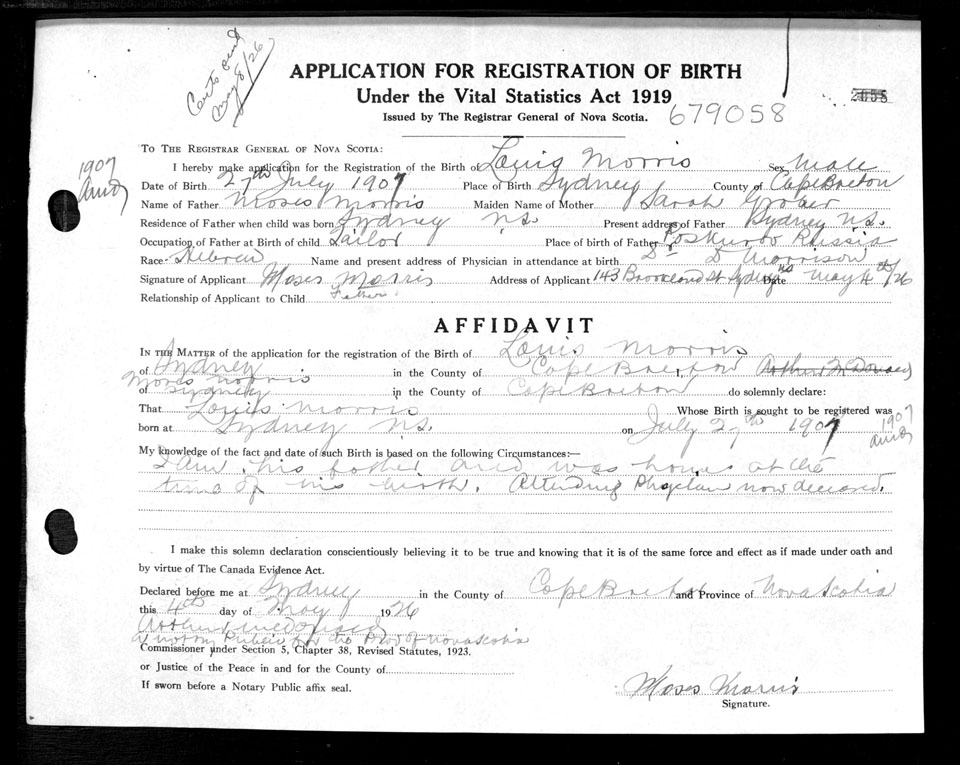 Certs and
May 8/26
APPLICATION FOR REGISTRATION OF BIRTH
Under the Vital Statistics Act 1919
Issued by The Registrar General of Nova Scotia. 679058
TO THE REGISTRAR GENERAL OF NOVA SCOTIA:
1907
I hereby make application for the Registration of the Birth of Louis Morris Sex Male
Date of Birth 27th July 1907 Place of Birth Sydney County of Cape Breton
Name of Father Moses Morris Maiden Name of Mother Sarah Grober
Residence of Father when child was born Sydney N.S. Present address of Father Sydney N.S.
Occupation of Father at Birth of child Tailor Place of birth of Father Poskurov Russia
Race Hebrew Name and present address of Physician in attendance at birth Dr D Morrison
Signature of Applicant Moses Morris Address of Applicant 143 Brookland St Sydney NS Date May 4th/26
Relationship of Applicant to Child Father
AFFIDAVIT
IN THE MATTER of the application for the registration of the Birth of Louis Morris
of Sydney in the County of Cape Breton Arthur McDonald
Moses Morris
of Sydney in the County of Cape Breton do solemnly declare:
That Louis Morris Whose Birth is sought to be registered was
born at Sydney N.S. on July 27th 1907 1907
My knowledge of the fact and date of such Birth is based on the following Circumstances:—
I am his father and was home at the
time of his birth. Attending Physician now deceased.
I make this solemn declaration conscientiously believing it to be true and knowing that it is of the same force and effect as if made under oath and
by virtue of The Canada Evidence Act.
Declared before me at Sydney in the County of Cape Breton and Province of Nova Scotia
this 4th day of May 1926
A Notary Public for the Prov of Nova Scotia
Commissioner under Section 5, Chapter 38, Revised Statutes, 1923.
or Justice of the Peace in and for the County of
If sworn before a Notary Public affix seal.
Moses Morris
Signature.